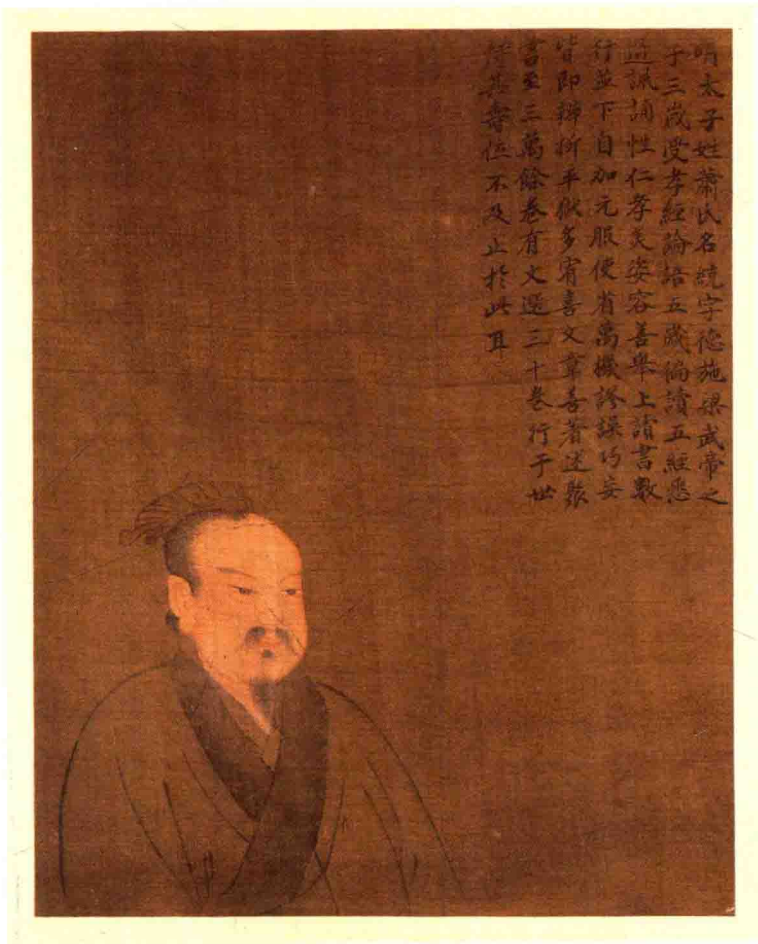 明太子姓蕭氏名統字德施梁武帝之
子三歲受孝經論語五歲徧讀五經悉
通諷誦性仁孝美姿容善舉止讀書數
行並下自加元服便省萬機謬誤巧妄
皆即辯析平獄多宥喜文章善著述聚
書至三萬餘卷有文選三十卷行于世
其壽位不及止於此耳